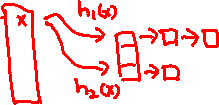 x
h₁(x)
h₂(x)